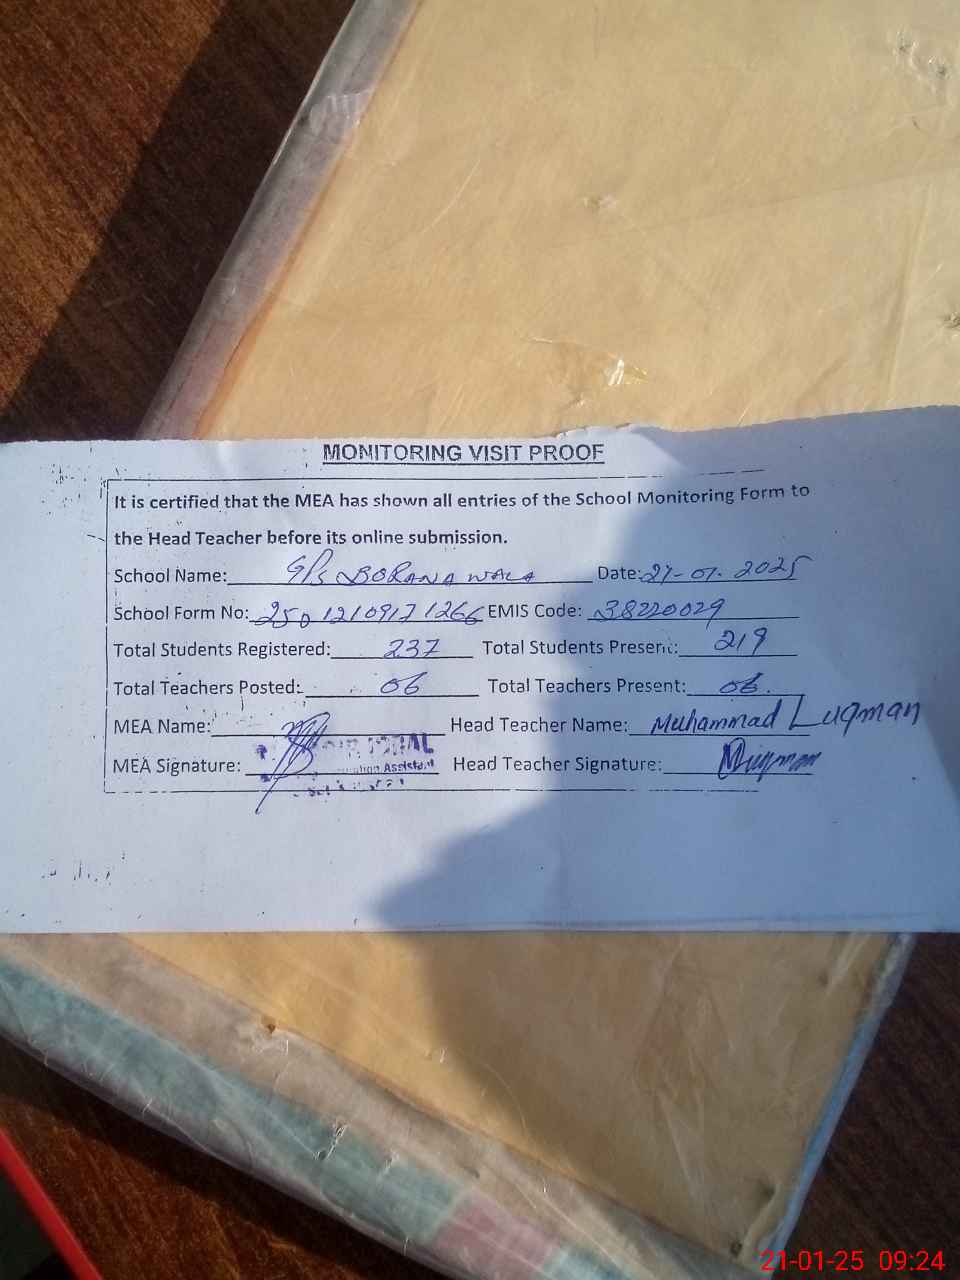 MONITORING VISIT PROOF
It is certified that the MEA has shown all entries of the School Monitoring Form to
the Head Teacher before its online submission.
School Name: GPS BORANA WALA Date: 21-01-2025
School Form No: 25012109171266 EMIS Code: 38220029
Total Students Registered: 237 Total Students Present: 219
Total Teachers Posted: 06 Total Teachers Present: 06.
MEA Name: Head Teacher Name: Muhammad Luqman
MEA Signature: Head Teacher Signature: Luqman
Assistant
21-01-25 09:24